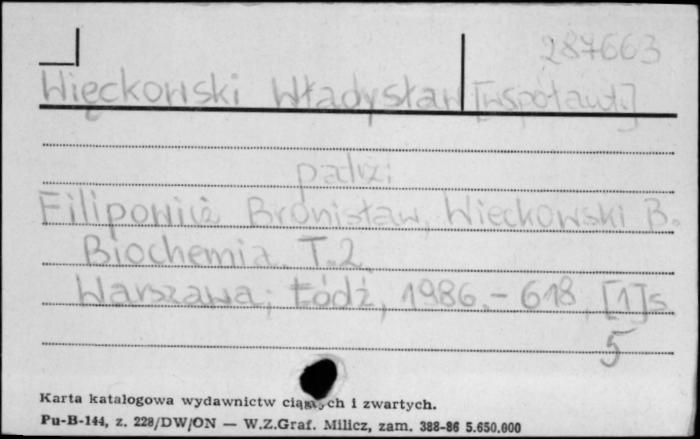 287663
Więckowski Władysław [współaut.]
patrz:
Filipowicz Bronisław, Więckowski B.
Biochemia. T. 2.
Warszawa; Łódź, 1986. - 618, [1] s.
5
Karta katalogowa wydawnictw ciągłych i zwartych.
Pu-B-144, z. 228/DW/ON — W.Z.Graf. Milicz, zam. 388-86 5.650.000